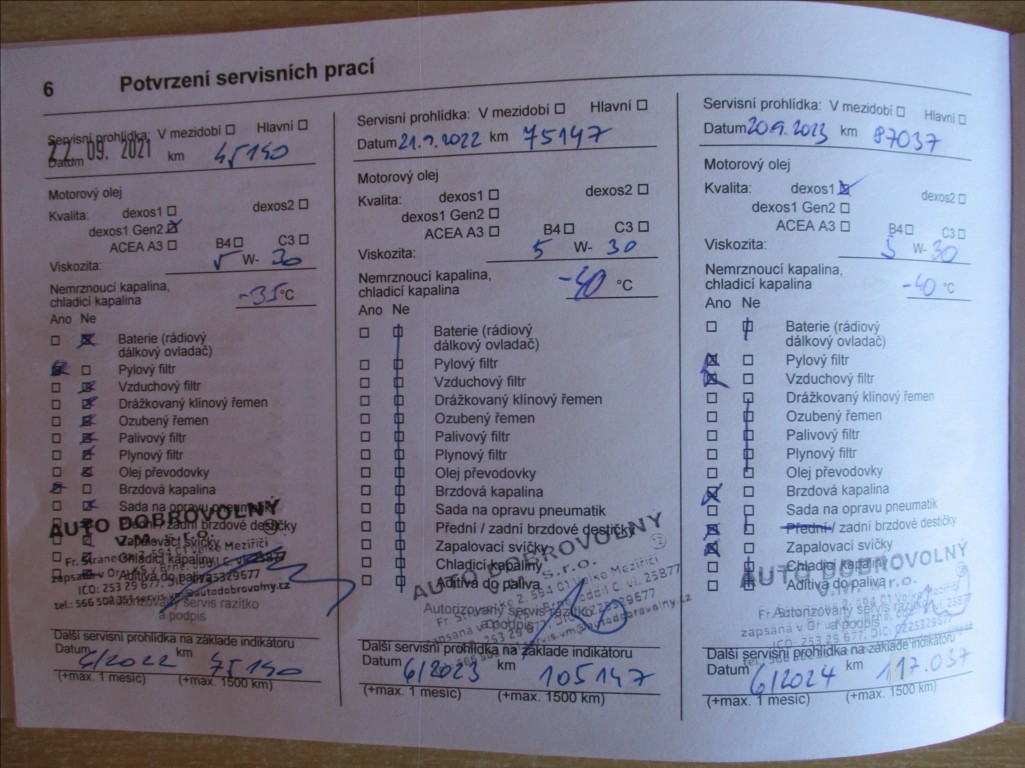 6 Potvrzení servisních prací
Servisní prohlídka: V mezidobí ☐ Hlavní ☐
Datum 22. 09. 2021 km 45190
Motorový olej
Kvalita: dexos1 ☐ dexos2 ☐
dexos1 Gen2 ☒
ACEA A3 ☐ B4 ☐ C3 ☐
Viskozita: 5 W- 30
Nemrznoucí kapalina,
chladicí kapalina -35 °C
Ano Ne
☐ ☒ Baterie (rádiový
dálkový ovladač)
☒ ☐ Pylový filtr
☐ ☒ Vzduchový filtr
☐ ☒ Drážkovaný klínový řemen
☐ ☒ Ozubený řemen
☐ ☒ Palivový filtr
☐ ☒ Plynový filtr
☐ ☒ Olej převodovky
☒ ☐ Brzdová kapalina
Sada na opravu pneumatik
Přední / zadní brzdové destičky
Zapalovací svíčky
Chladicí kapaliny
Aditiva do paliva
AUTO DOBROVOLNÝ
V.M. s.r.o.
594 01 Velké Meziříčí
IČO: 253 29 677, DIČ: CZ25329677
Autorizovaný servis razítko
a podpis
Další servisní prohlídka na základě indikátoru
Datum 6/2022 km 75190
(+max. 1 měsíc) (+max. 1500 km)
Servisní prohlídka: V mezidobí ☐ Hlavní ☐
Datum 21.9.2022 km 75147
Motorový olej
Kvalita: dexos1 ☐ dexos2 ☐
dexos1 Gen2 ☐
ACEA A3 ☐ B4 ☐ C3 ☐
Viskozita: 5 W- 30
Nemrznoucí kapalina,
chladicí kapalina -40 °C
Ano Ne
Baterie (rádiový
dálkový ovladač)
Pylový filtr
Vzduchový filtr
Drážkovaný klínový řemen
Ozubený řemen
Palivový filtr
Plynový filtr
Olej převodovky
Brzdová kapalina
Sada na opravu pneumatik
Přední / zadní brzdové destičky
Zapalovací svíčky
Chladicí kapaliny
Aditiva do paliva
AUTO DOBROVOLNÝ
s.r.o.
594 01 Velké Meziříčí
Autorizovaný servis razítko
a podpis
Další servisní prohlídka na základě indikátoru
Datum 6/2023 km 105147
(+max. 1 měsíc) (+max. 1500 km)
Servisní prohlídka: V mezidobí ☐ Hlavní ☐
Datum 20.9.2023 km 87037
Motorový olej
Kvalita: dexos1 ☒ dexos2 ☐
dexos1 Gen2 ☐
ACEA A3 ☐ B4 ☐ C3 ☐
Viskozita: 5 W- 30
Nemrznoucí kapalina,
chladicí kapalina -40 °C
Ano Ne
Baterie (rádiový
dálkový ovladač)
☒ ☐ Pylový filtr
☒ ☐ Vzduchový filtr
Drážkovaný klínový řemen
Ozubený řemen
Palivový filtr
Plynový filtr
Olej převodovky
☒ ☐ Brzdová kapalina
Sada na opravu pneumatik
☒ ☐ Přední / zadní brzdové destičky
☒ ☐ Zapalovací svíčky
Chladicí kapaliny
Aditiva do paliva
AUTO DOBROVOLNÝ
V.M. s.r.o.
Autorizovaný servis razítko
a podpis
Další servisní prohlídka na základě indikátoru
Datum 6/2024 km 117.037
(+max. 1 měsíc) (+max. 1500 km)